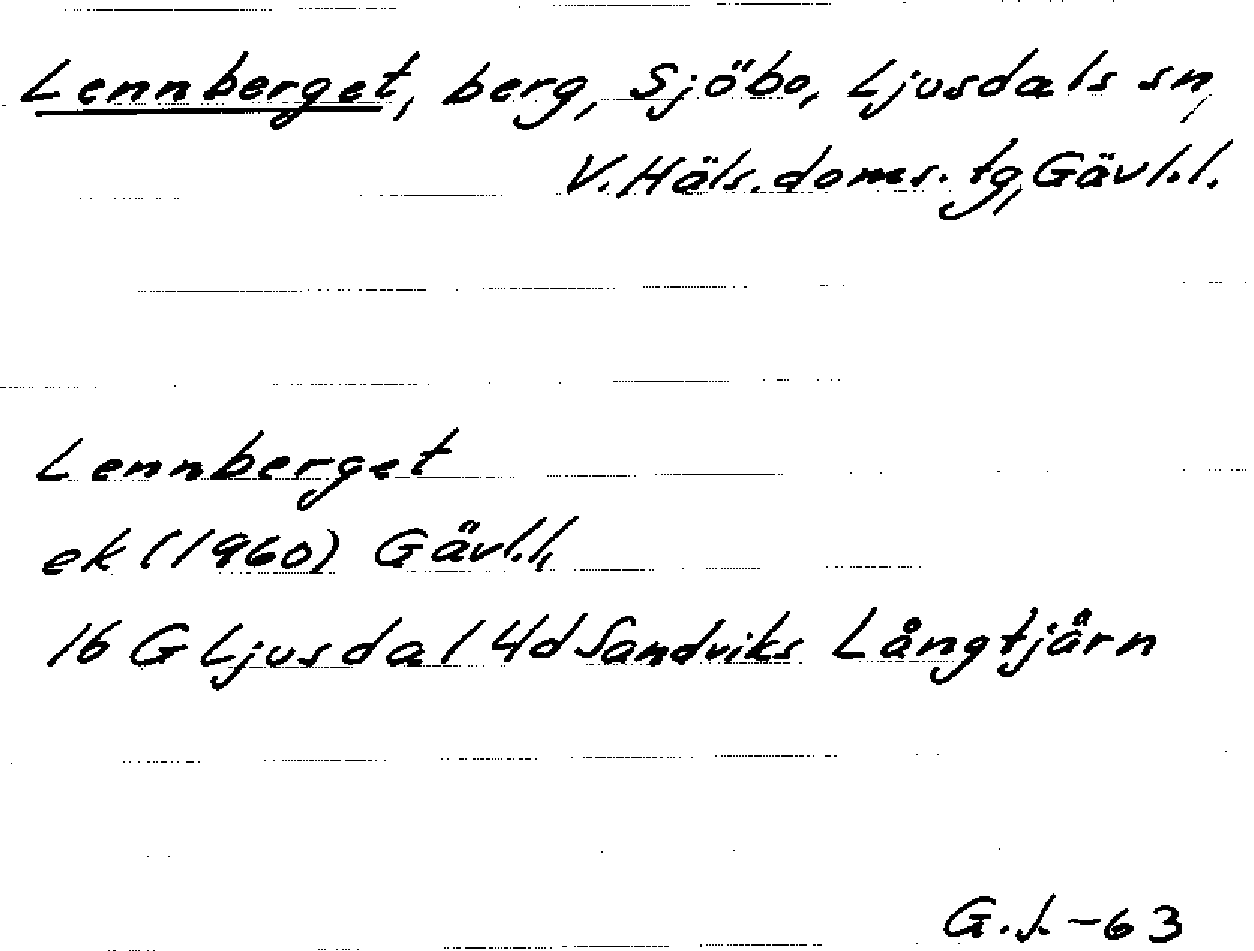 Lennberget, berg, Sjöbo, Ljusdals sn,
V. Häls. doms. tg, Gävl.l.
Lennberget
ek (1960) Gävl.l,
16 G Ljusdal 4d Sandviks Långtjärn
G.L-63